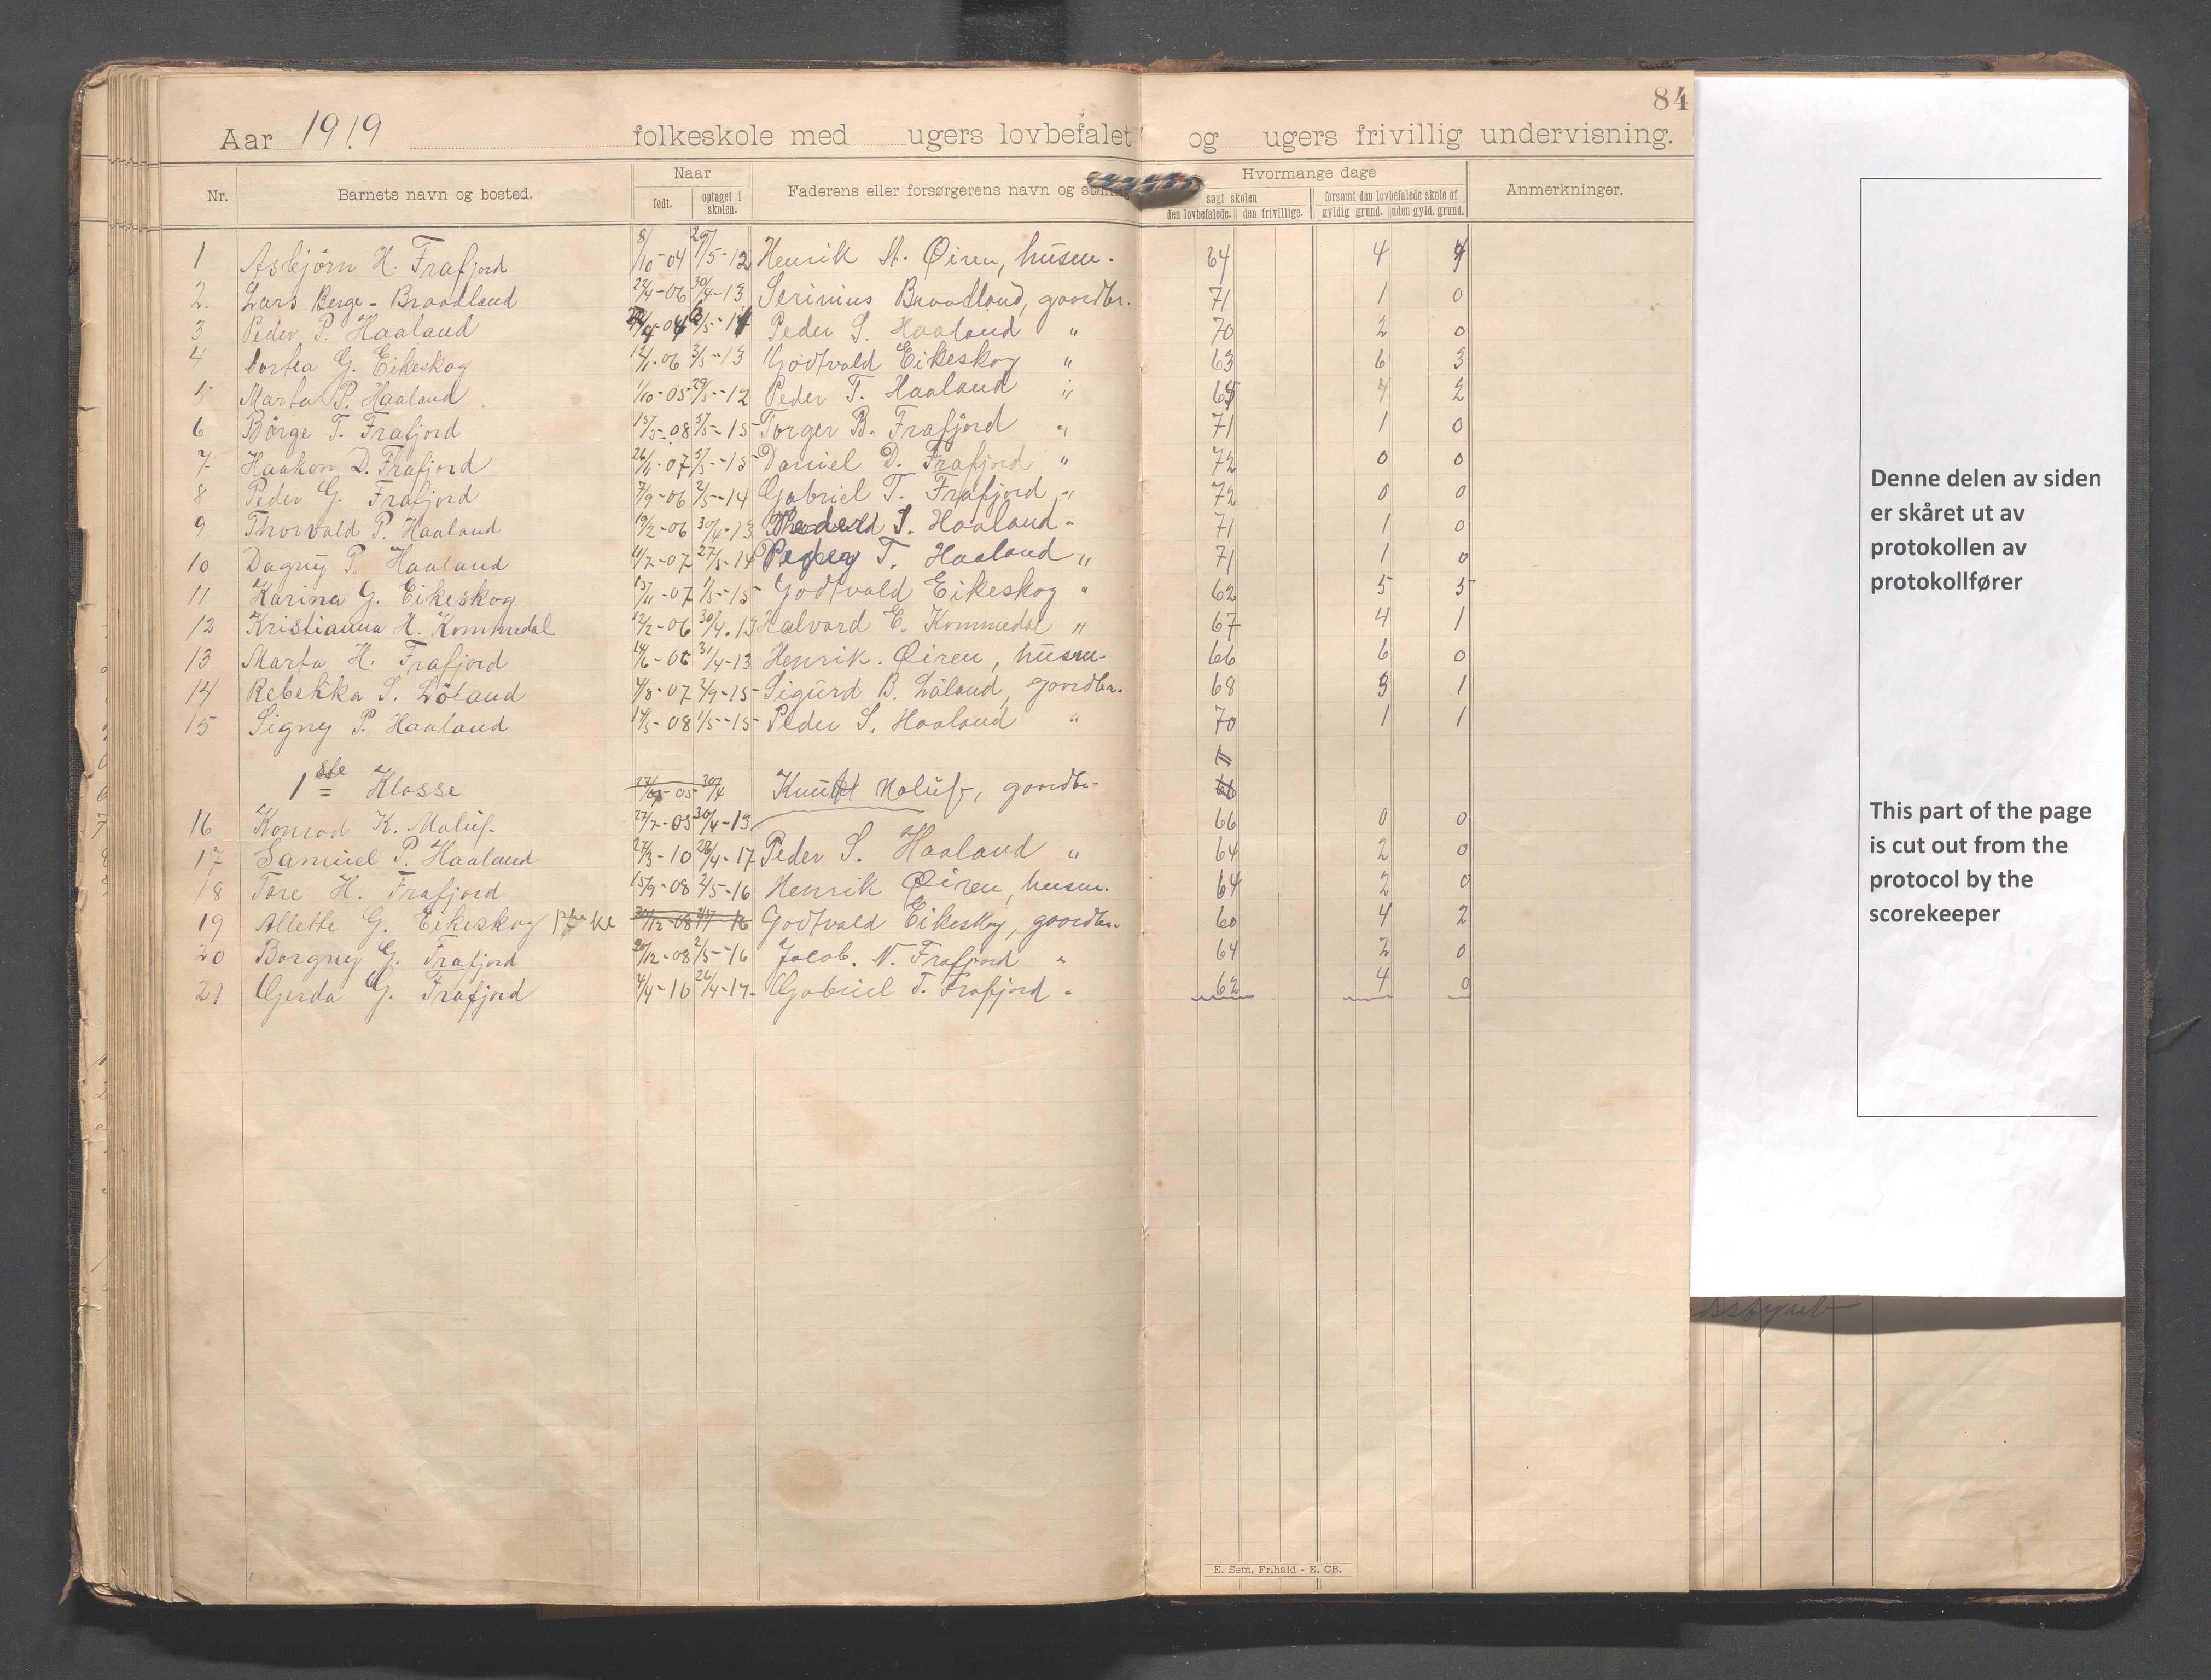 84
Aar 1919 folkeskole med ugers lovbefalet og ugers frivillig undervisning.
Nr. Barnets navn og bosted. Naar født. optaget i skolen. Faderens eller forsørgerens navn og Hvormange dage søgt skolen den lovbefalede. den frivillige. forsømt den lovbefalede skole af gyldig grund. uden gyld. grund. Anmerkninger.
1 Asbjørn H. Frafjord 8/10-04 29/5-12 Henrik St. Øiren, husm. 64 4 4
2. Lars Berge - Braadland 22/4-06 30/4-13 Serinius Braadland, gaardbr. 71 1 0
3 Peder P. Haaland Peder S. Haaland " 70 2 0
4 Dortea G. Eikeskog 12/1-06 3/5-13 Godtvald Eikeskog " 63 6 3
5 Marta P. Haaland 1/10-05 29/5-12 Peder T. Haaland " 65 4 2
6 Børge T. Frafjord 15/5-08 5/5-15 Torger B. Frafjord " 71 1 0
7 Haakon D. Frafjord 26/11-07 5/5-15 Daniel D. Frafjord " 72 0 0
8 Peder G. Frafjord 7/9-06 2/5-14 Gabriel T. Frafjord " 72 0 0
9 Thorvald P. Haaland 19/2-06 30/4-13 Peder S. Haaland - 71 1 0
10 Dagny P. Haaland 11/7-07 27/5-14 Peder T. Haaland " 71 1 0
11 Karina G. Eikeskog 15/11-07 1/5-15 Godtvald Eikeskog " 62 5 5
12 Kristianna H. Kommedal 12/2-06 30/4-13 Halvard E. Kommedal " 67 4 1
13 Marta H. Frafjord 14/6-06 31/4-13 Henrik. Øiren, husm. 66 6 0
14 Rebekka S. Løland 4/8-07 2/9-15 Sigurd B. Løland, gaardbr. 68 3 1
15 Signy P. Haaland 14/5-08 1/5-15 Peder S. Haaland " 70 1 1
1ste Klasse Knut Maluf, gaardbr-
16 Konrad K. Maluf. 27/7-05 30/4-13 66 0 0
17 Samuel P. Haaland 27/3-10 28/4-17 Peder S. Haaland " 64 2 0
18 Tore H. Frafjord 15/9-08 2/5-16 Henrik Øiren, husm. 64 2 0
19 Allette G. Eikeskog Godtvald Eikeskog, gaardbr. 60 4 2
20 Borgny G. Frafjord 20/12-08 2/5-16 Jacob. N. Frafjord " 64 2 0
21 Gerda G. Frafjord 4/4-10 26/4-17 Gabriel T. Frafjord - 62 4 0
E. Sem, Fr.hald - E. CB.
Denne delen av siden
er skåret ut av
protokollen av
protokollfører
This part of the page
is cut out from the
protocol by the
scorekeeper